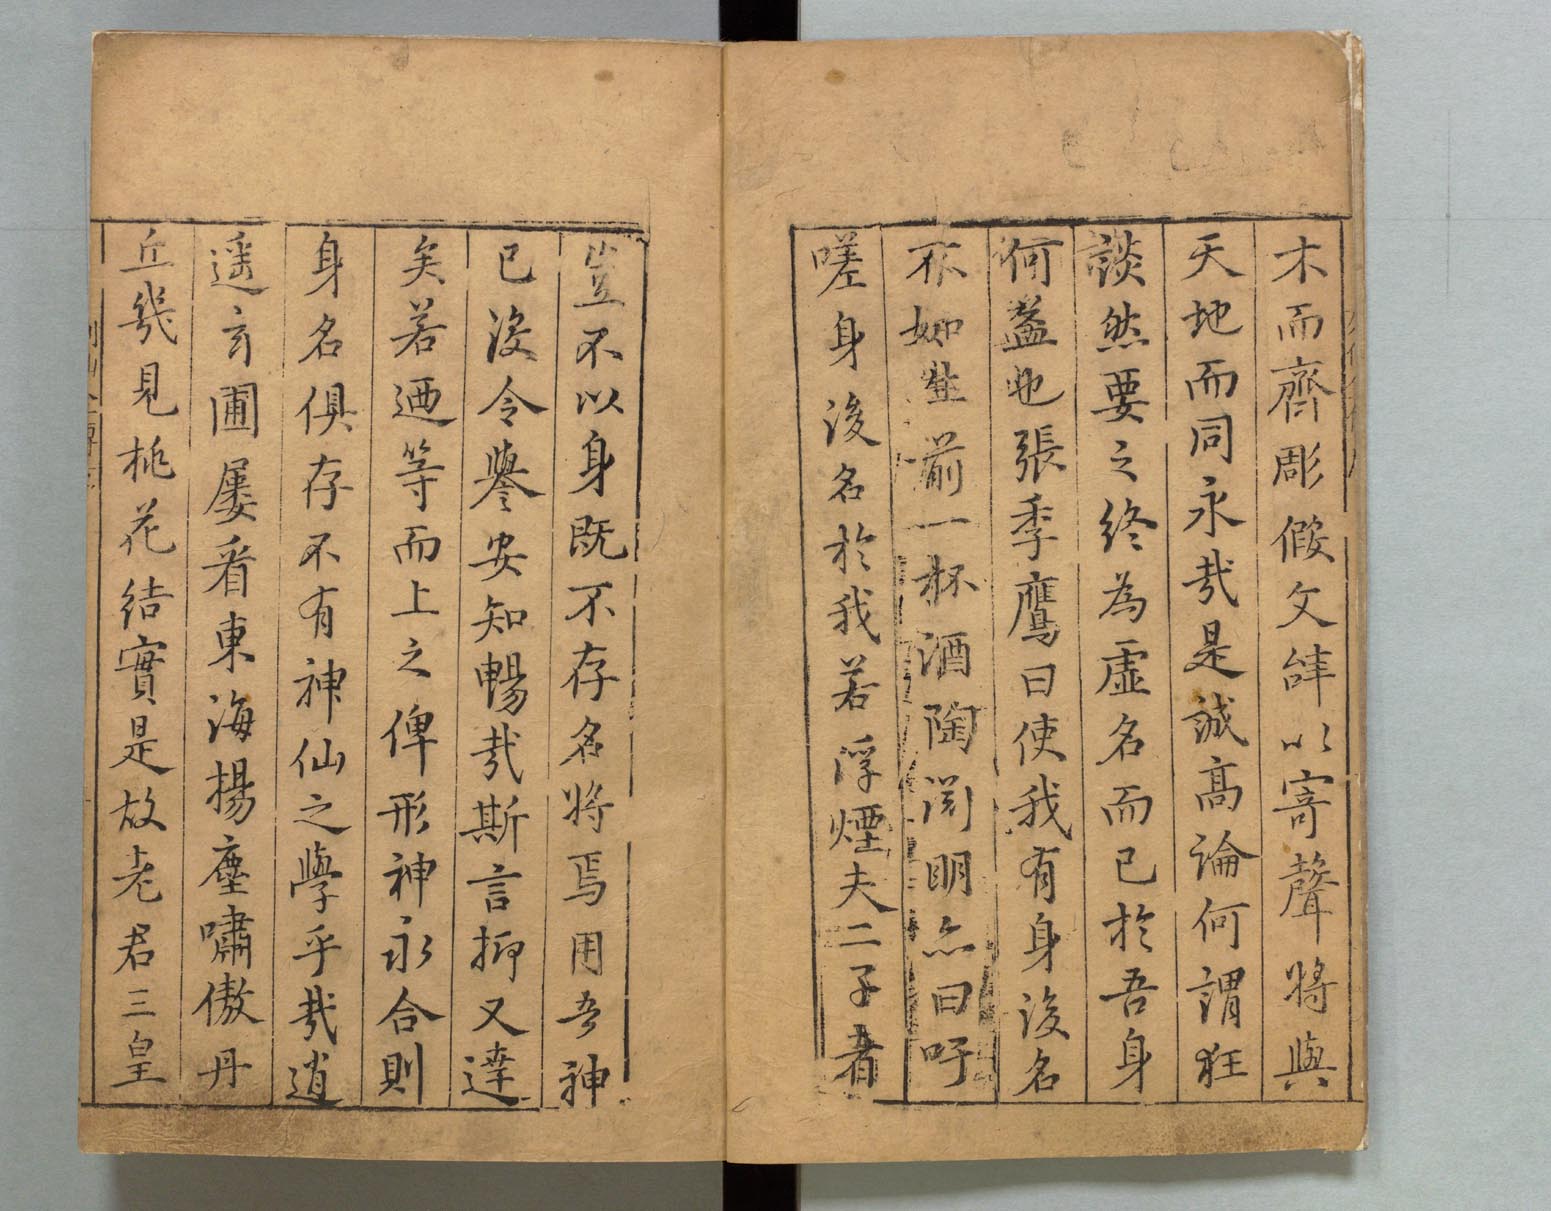 木而齊彫假文辞以寄聲將與
天地而同永㢤是誠髙論何謂狂
談然要之終為虛名而已於吾身
何益也張季鷹曰使我有身後名
不如生前一杯酒陶渕明亦曰吁
嗟身後名於我若浮煙夫二子者
豈不以身既不存名將焉用吾神
已没令譽安知暢㢤斯言抑又達
矣若迺等而上之俾形神永合則
身名俱存不有神仙之學乎㢤逍
遥玄圃屢看東海揚塵嘯傲丹
丘幾見桃花結實是故老君三皇